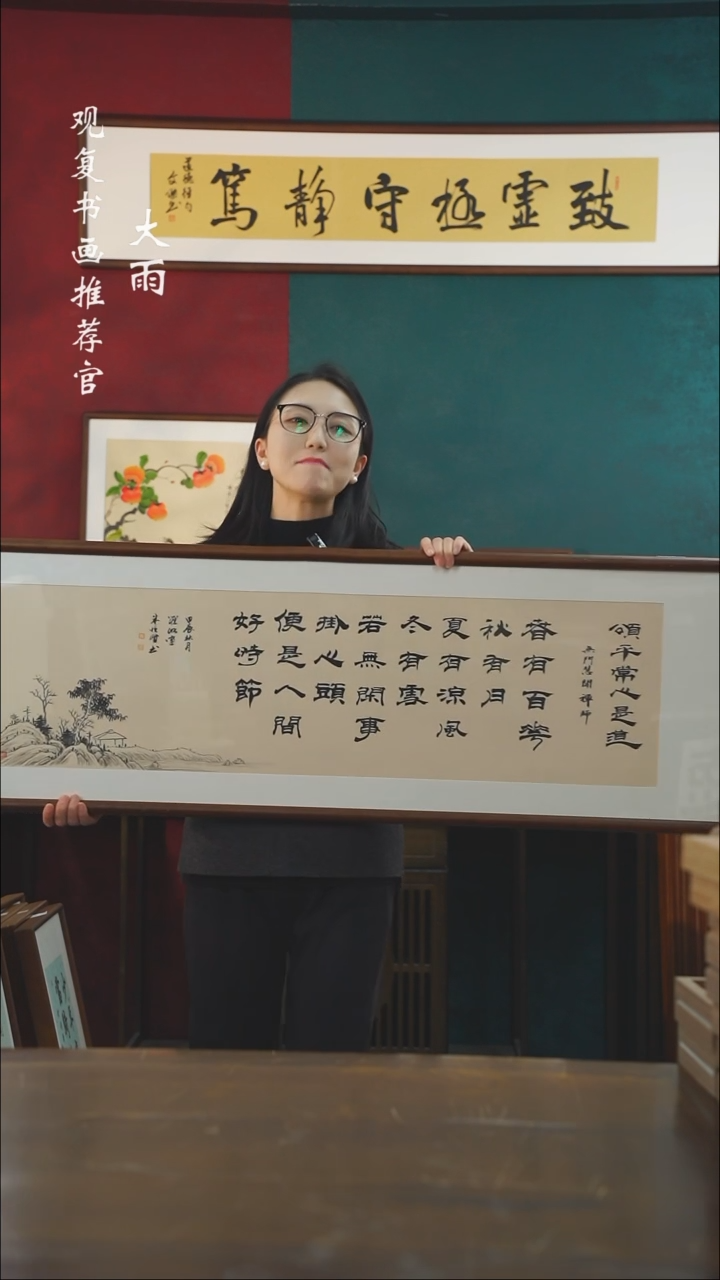 观复书画推荐官
大雨
致虚極守靜篤
道德經句
頌平常心是道
无門慧開禪師
春有百華
秋有月
夏有涼風
冬有雪
若無閑事
掛心頭
便是人間
好時節
甲辰秋月